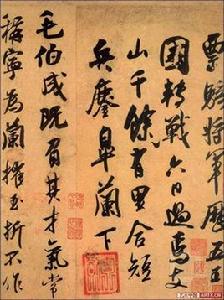 票騎將軍歷
國轉戰六日過焉支
山千餘有里合短
兵鏖皋蘭下
毛伯成既負其才氣常
稱寧為蘭摧玉折不作